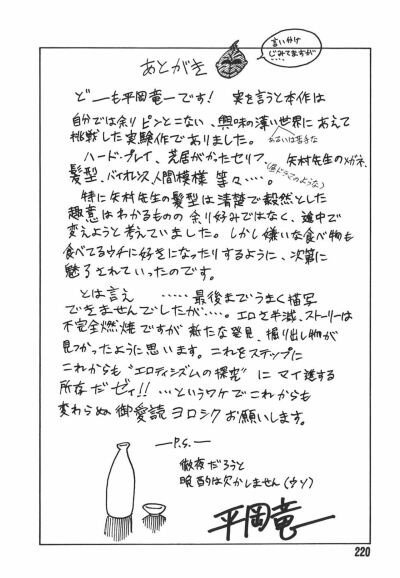 あとがき
言いわけ
じみてますが
どーも平岡竜一です! 実を言うと本作は
自分では余りピンとこない、興味の薄い世界にあえて
挑戦した実験作でありました。
あるいは苦手な
ハード・プレイ、芝居がかったセリフ、矢村先生のメガネ、
(昼ドラマのような)
髪型、バイオレンス、人間模様 等々・・・・。
特に矢村先生の髪型は清楚で毅然とした
趣意はわかるものの 余り好みではなく、途中で
変えようと考えていました。しかし嫌いな食べ物も
食べてるウチに好きになったりするように、次第に
魅了されていったのです。
とは言え ・・・・・最後までうまく描写
できませんでしたが・・・・。エロさ半減、ストーリーは
不完全燃焼ですが 新たな発見、掘り出し物が
見つかったように思います。これをステップに
これからも“エロティシズムの探究”に マイ進する
所存だゼィ!! ...というワケで これからも
変わらぬ御愛読ヨロシクお願いします。
—P.S.—
徹夜だろうと
晩酌は欠かしません(ウソ)
平岡竜一
220